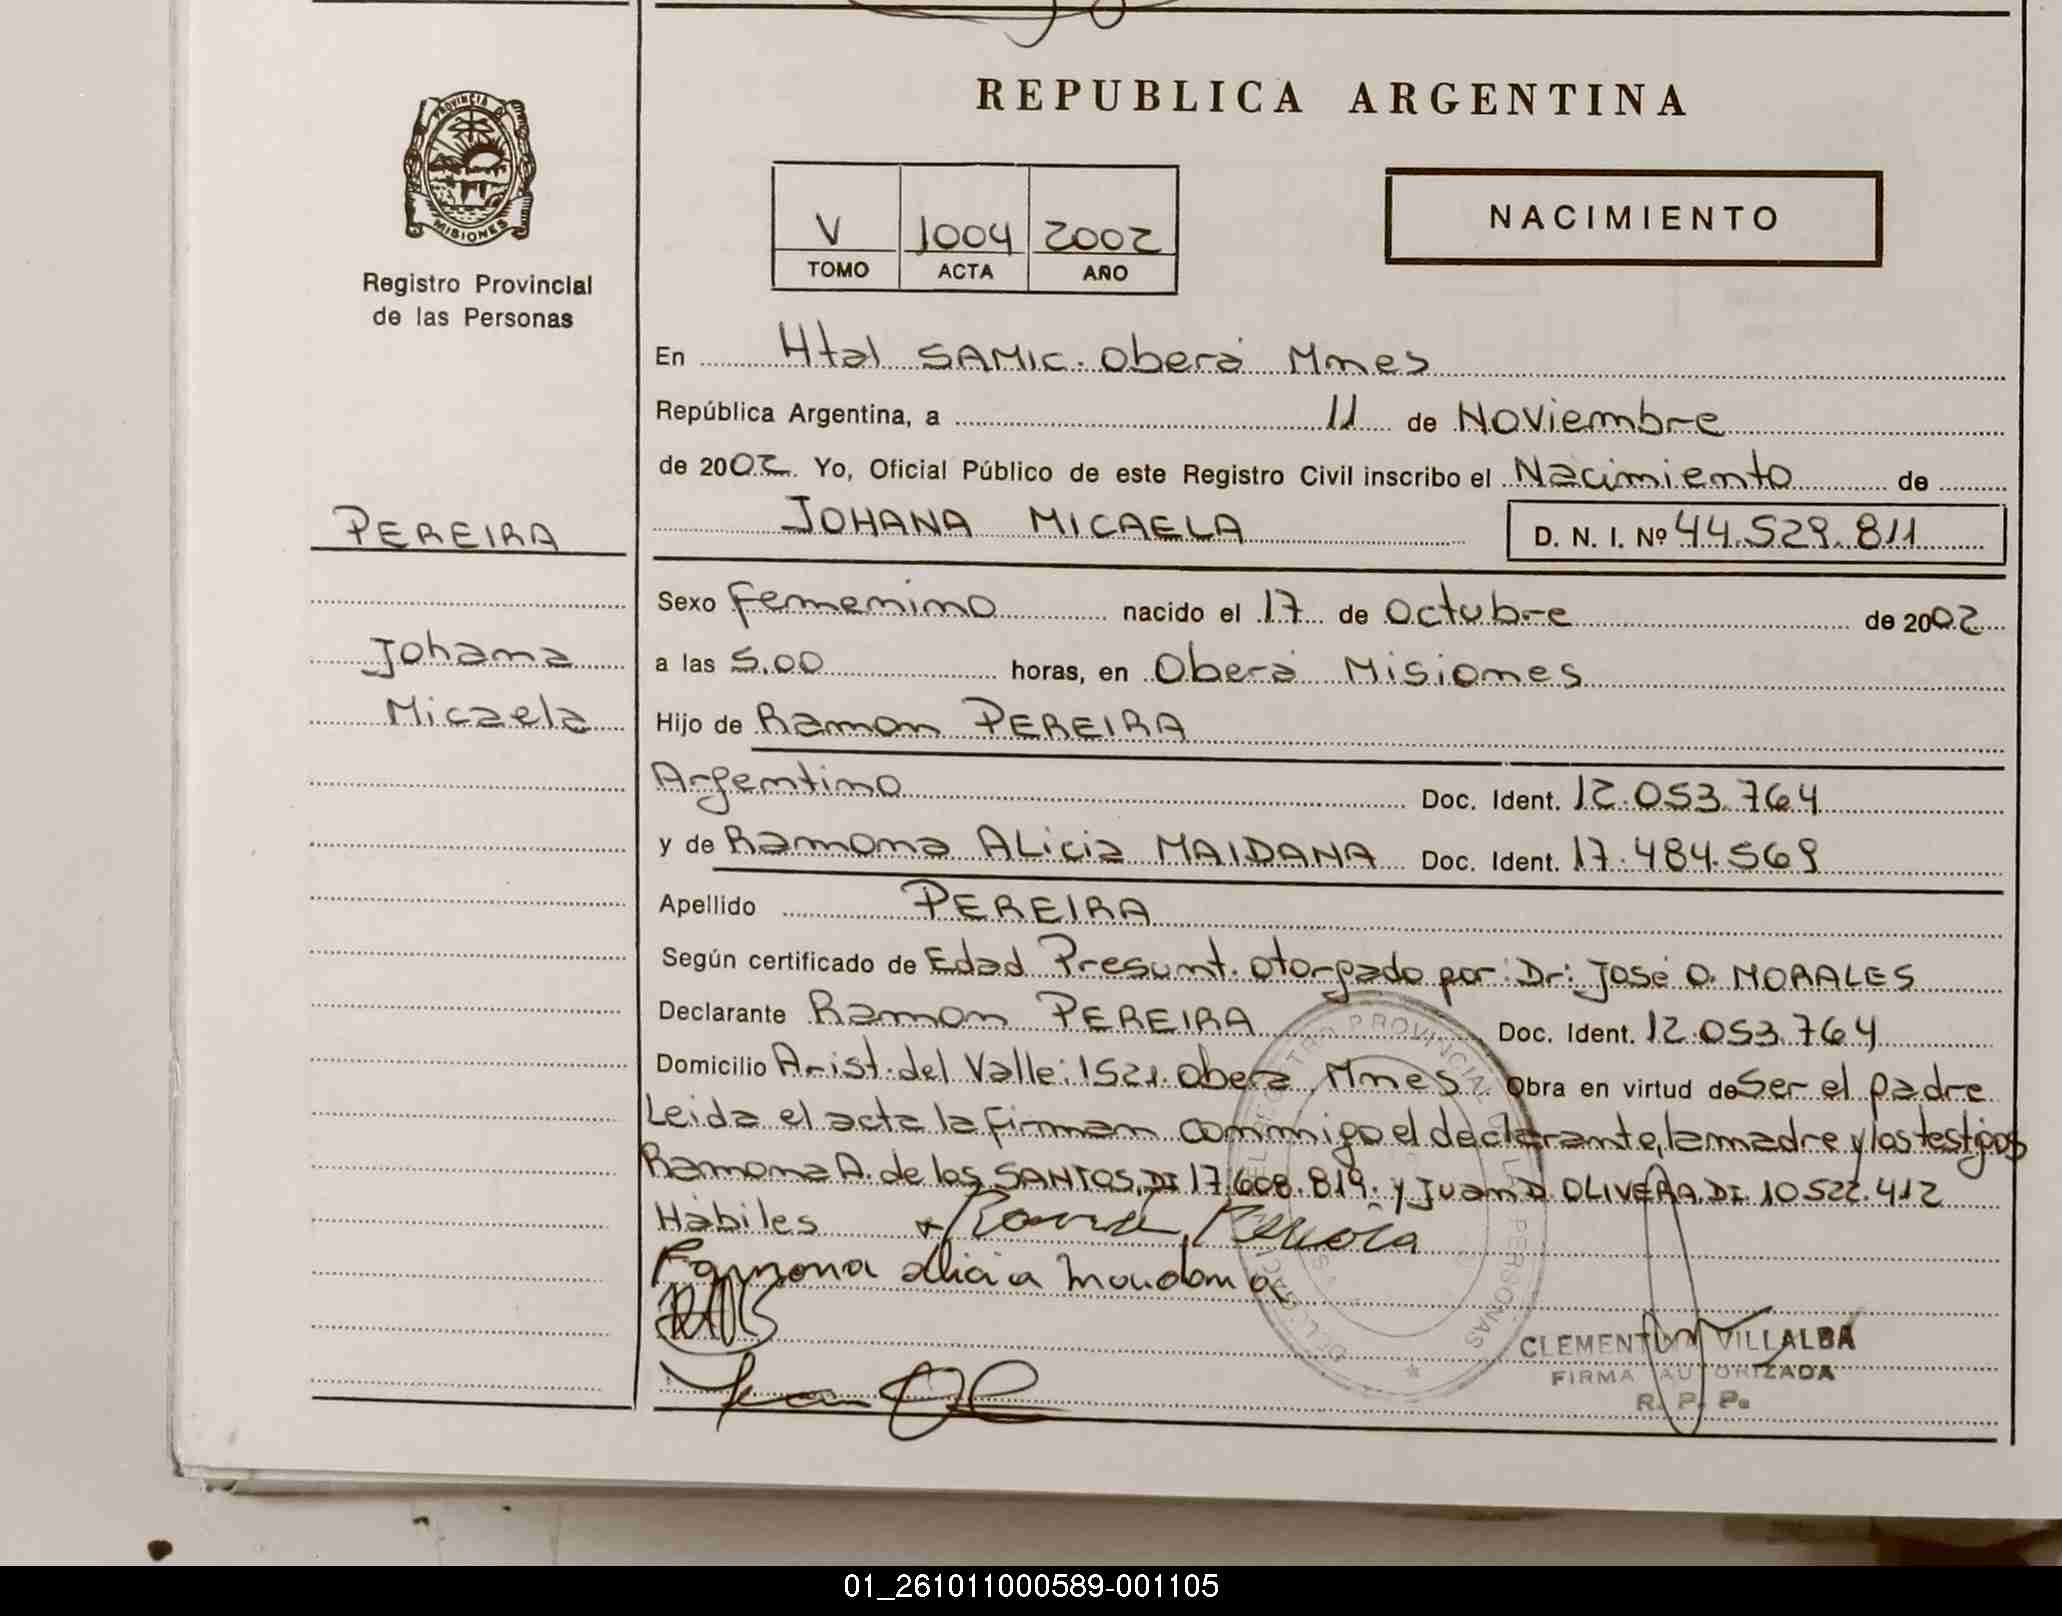 REPUBLICA ARGENTINA
PROVINCIA DE
MISIONES
Registro Provincial
de las Personas
V 1004 2002
TOMO ACTA AÑO
NACIMIENTO
En Htal SAMIC. Oberá Mnes
República Argentina, a 11 de Noviembre
de 2002. Yo, Oficial Público de este Registro Civil inscribo el Nacimiento de
PEREIRA
JOHANA MICAELA D. N. I. Nº 44.529.811
Sexo femenino nacido el 17 de Octubre de 2002
Johana
a las 5.00 horas, en Oberá Misiones
Micaela
Hijo de Ramon PEREIRA
Argentino Doc. Ident. 12.053.764
y de Ramona ALicia MAIDANA Doc. Ident. 17.484.569
Apellido PEREIRA
Según certificado de Edad Presunt. otorgado por: Dr: José O. MORALES
Declarante Ramon PEREIRA Doc. Ident. 12.053.764
Domicilio Arist. del Valle: 1521. Oberá, Mnes Obra en virtud de Ser el padre
Leida el acta la firman conmigo el declarante, la madre y los testigos
Ramona A. de los SANTOS, DI 17.608.819. y Juan D. OLIVERA, DI. 10.522.412
Hábiles
Ramona Alicia Maidana
REGISTRO PROVINCIAL DE LAS PERSONAS
CLEMENTINA VILLALBA
FIRMA AUTORIZADA
R. P. P.
01_261011000589-001105